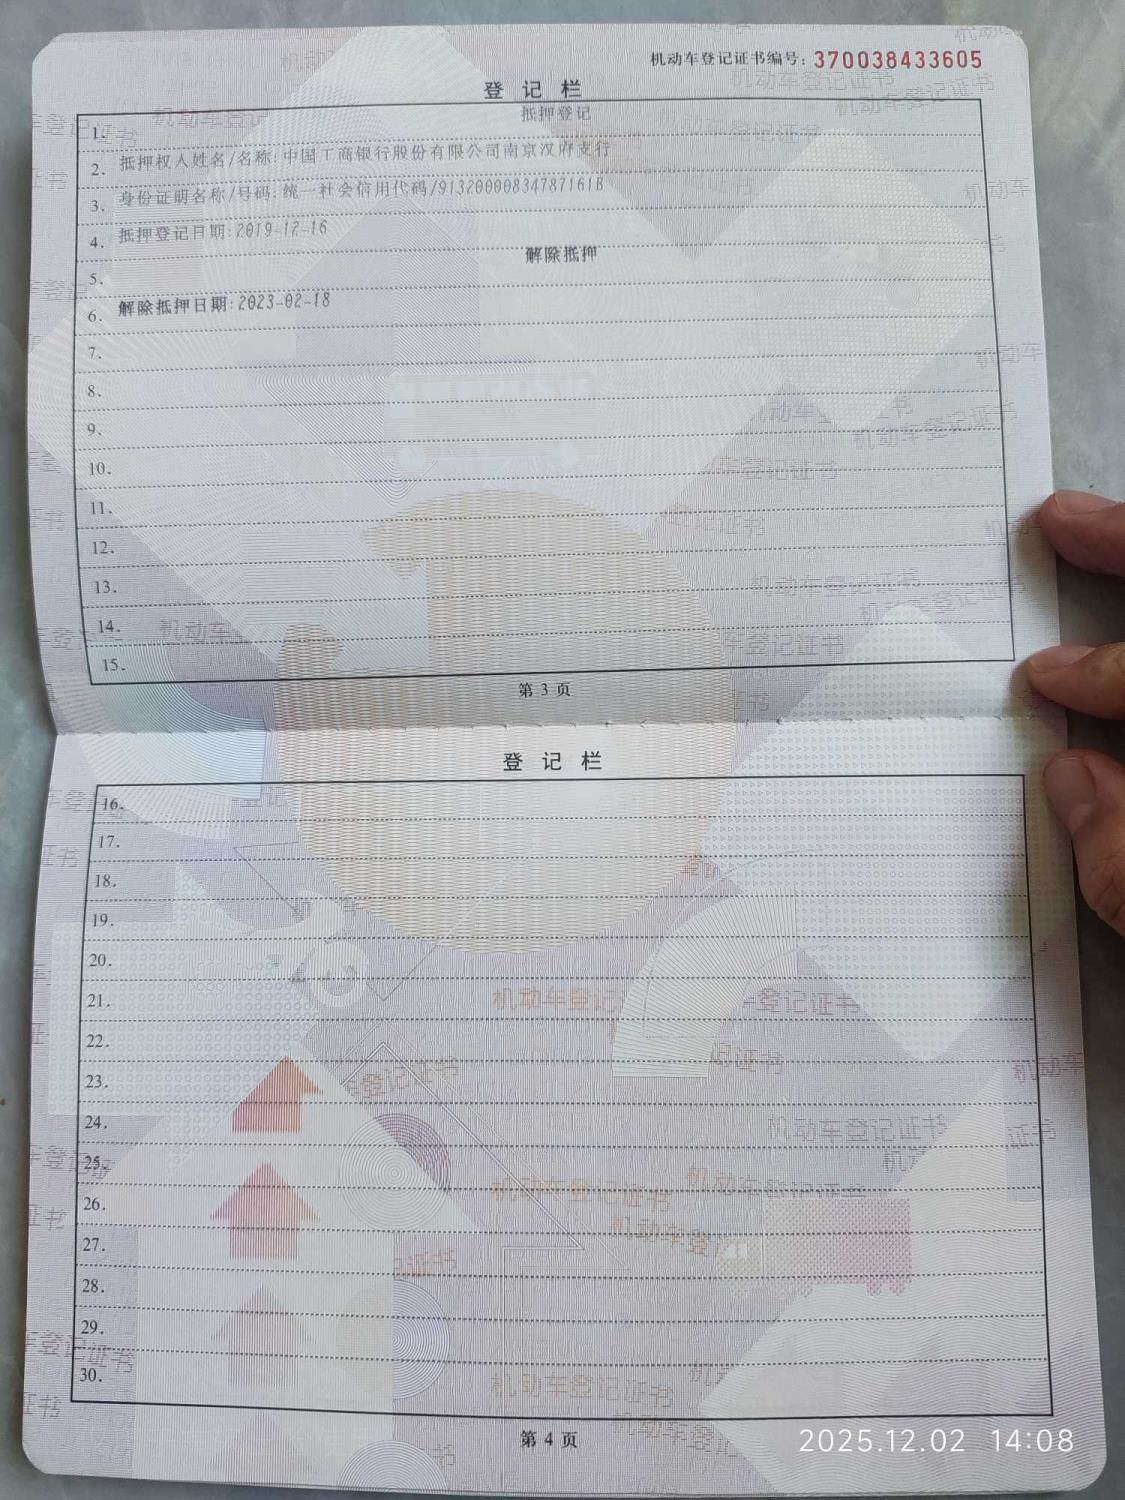 机动车登记证书编号: 370038433605
登 记 栏
1. 抵押登记
2. 抵押权人姓名/名称:中国工商银行股份有限公司南京汉府支行
3. 身份证明名称/号码:统一社会信用代码/91320000834787161B
4. 抵押登记日期:2019-12-16
5. 解除抵押
6. 解除抵押日期:2023-02-18
7.
8.
9.
10.
11.
12.
13.
14.
15.
第 3 页
登 记 栏
16.
17.
18.
19.
20.
21.
22.
23.
24.
25.
26.
27.
28.
29.
30.
第 4 页
2025.12.02 14:08